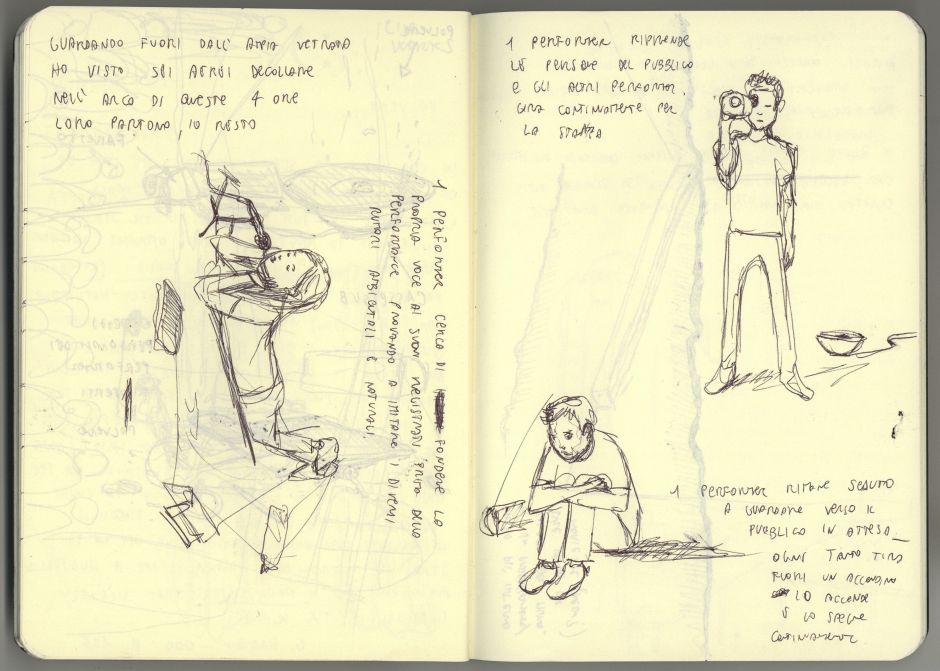 GUARDANDO FUORI DALL' AMPIA VETRATA
HO VISTO SEI AEREI DECOLLARE
NELL' ARCO DI QUESTE 4 ORE
LORO PARTONO, IO RESTO
1 PERFORMER CERCA DI FONDERE LA
PROPRIA VOCE AI SUONI REGISTRATI PRIMA DELLA
PERFORMANCE PROVANDO A IMITARE I DIVERSI
RUMORI ABIENTALI E NATURALI
1 PERFORMER RIPRENDE
LE PERSONE DEL PUBBLICO
E GLI ALTRI PERFORMER.
GIRA CONTINUAMENTE PER
LA STANZA
1 PERFORMER RIMANE SEDUTO
A GUARDARE VERSO IL
PUBBLICO IN ATTESA_
OGNI TANTO TIRA
FUORI UN ACCENDINO
LO ACCENDE
E LO SPEGNE
CONTINUAMENTE